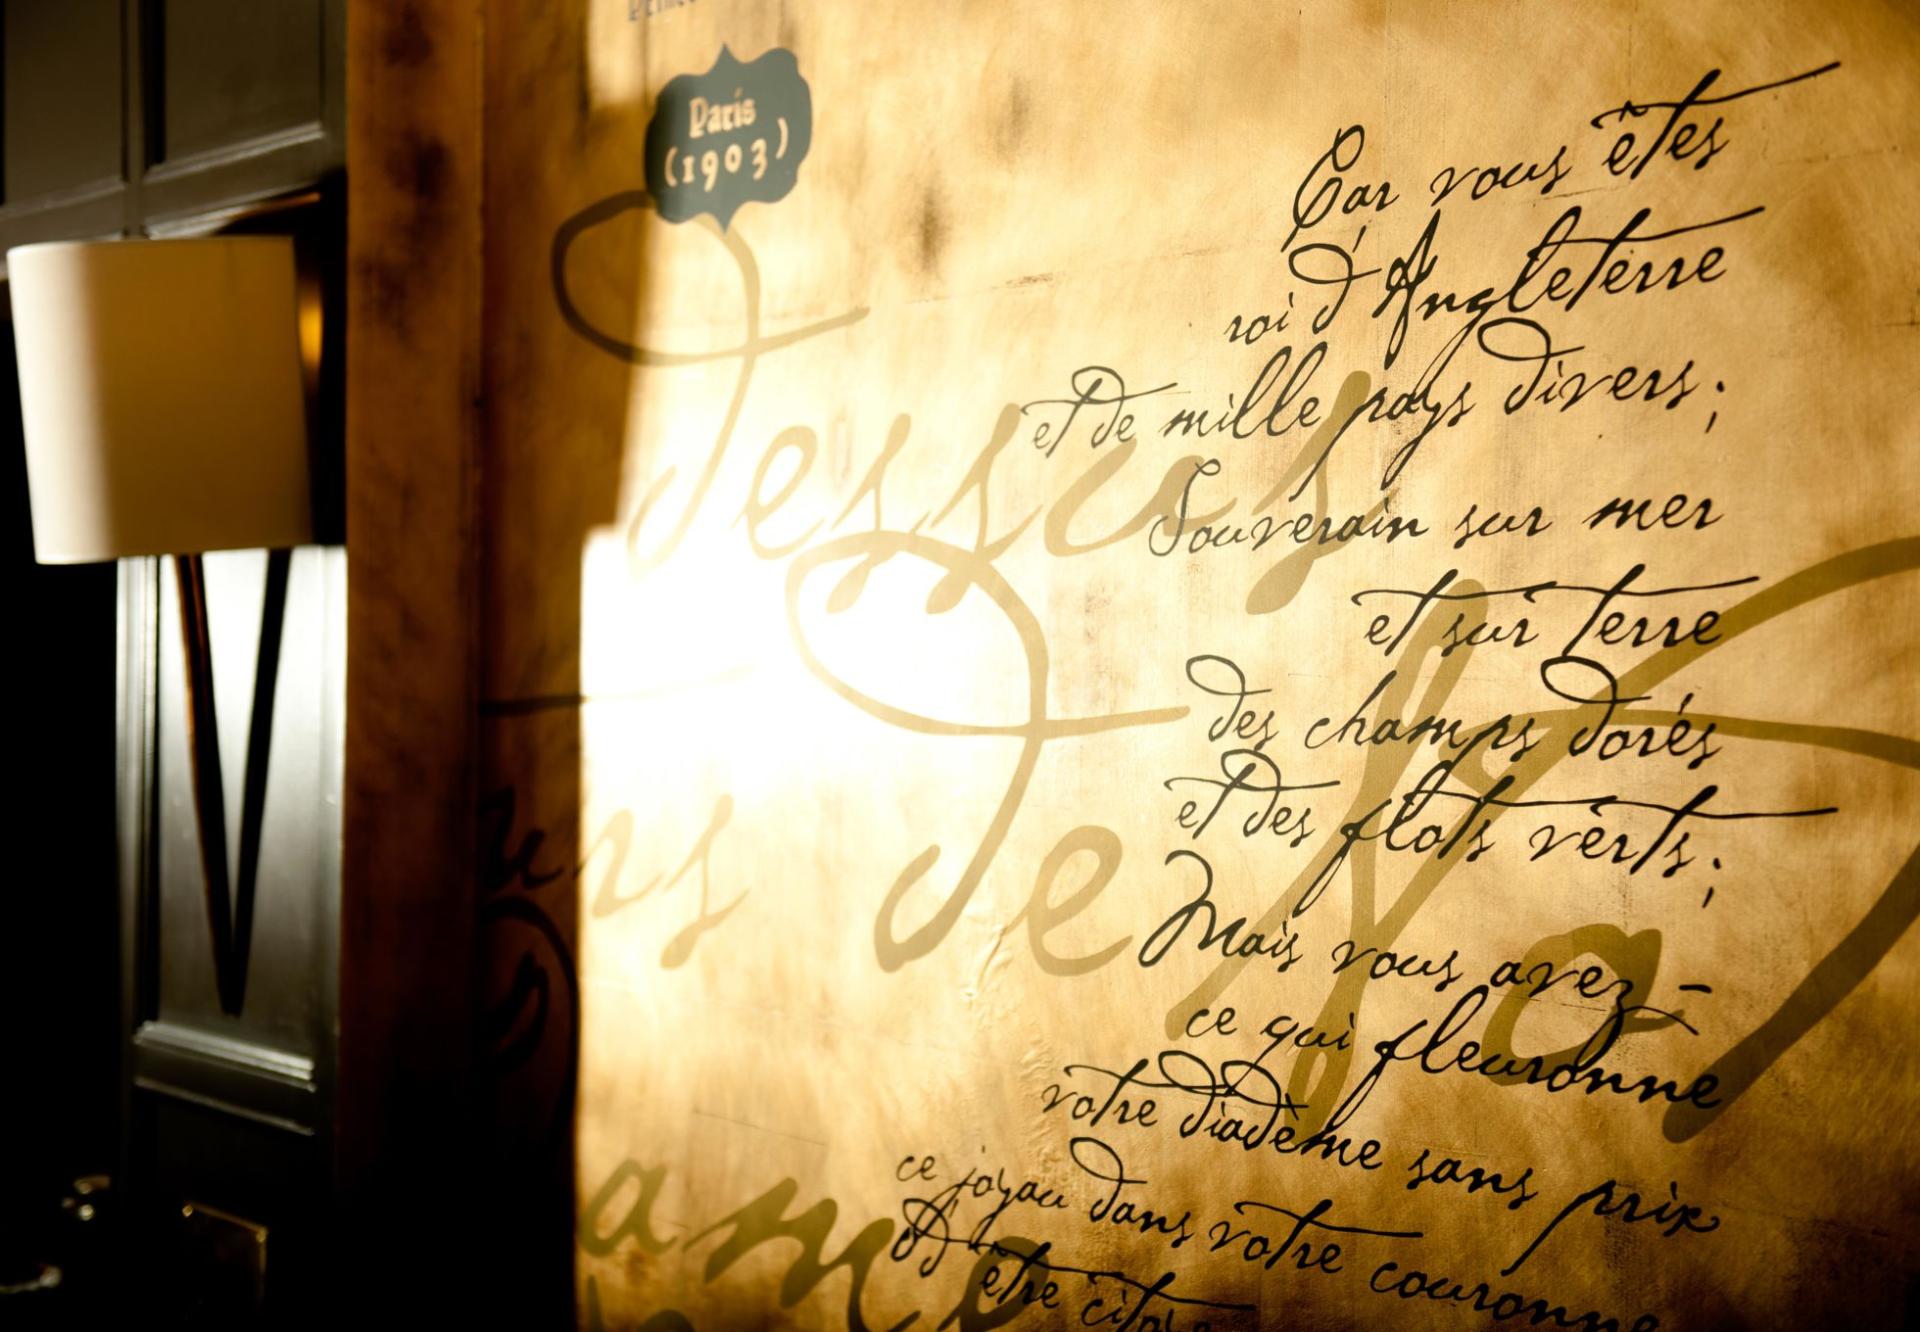 Paris
(1903)
Car vous êtes
roi d'Angleterre
et de mille pays divers;
Souverain sur mer
et sur terre
des champs dorés
et des flots verts;
Mais vous avez -
ce qui fleuronne
votre diadème sans prix
ce joyau dans votre couronne
D'être
dessus
de la